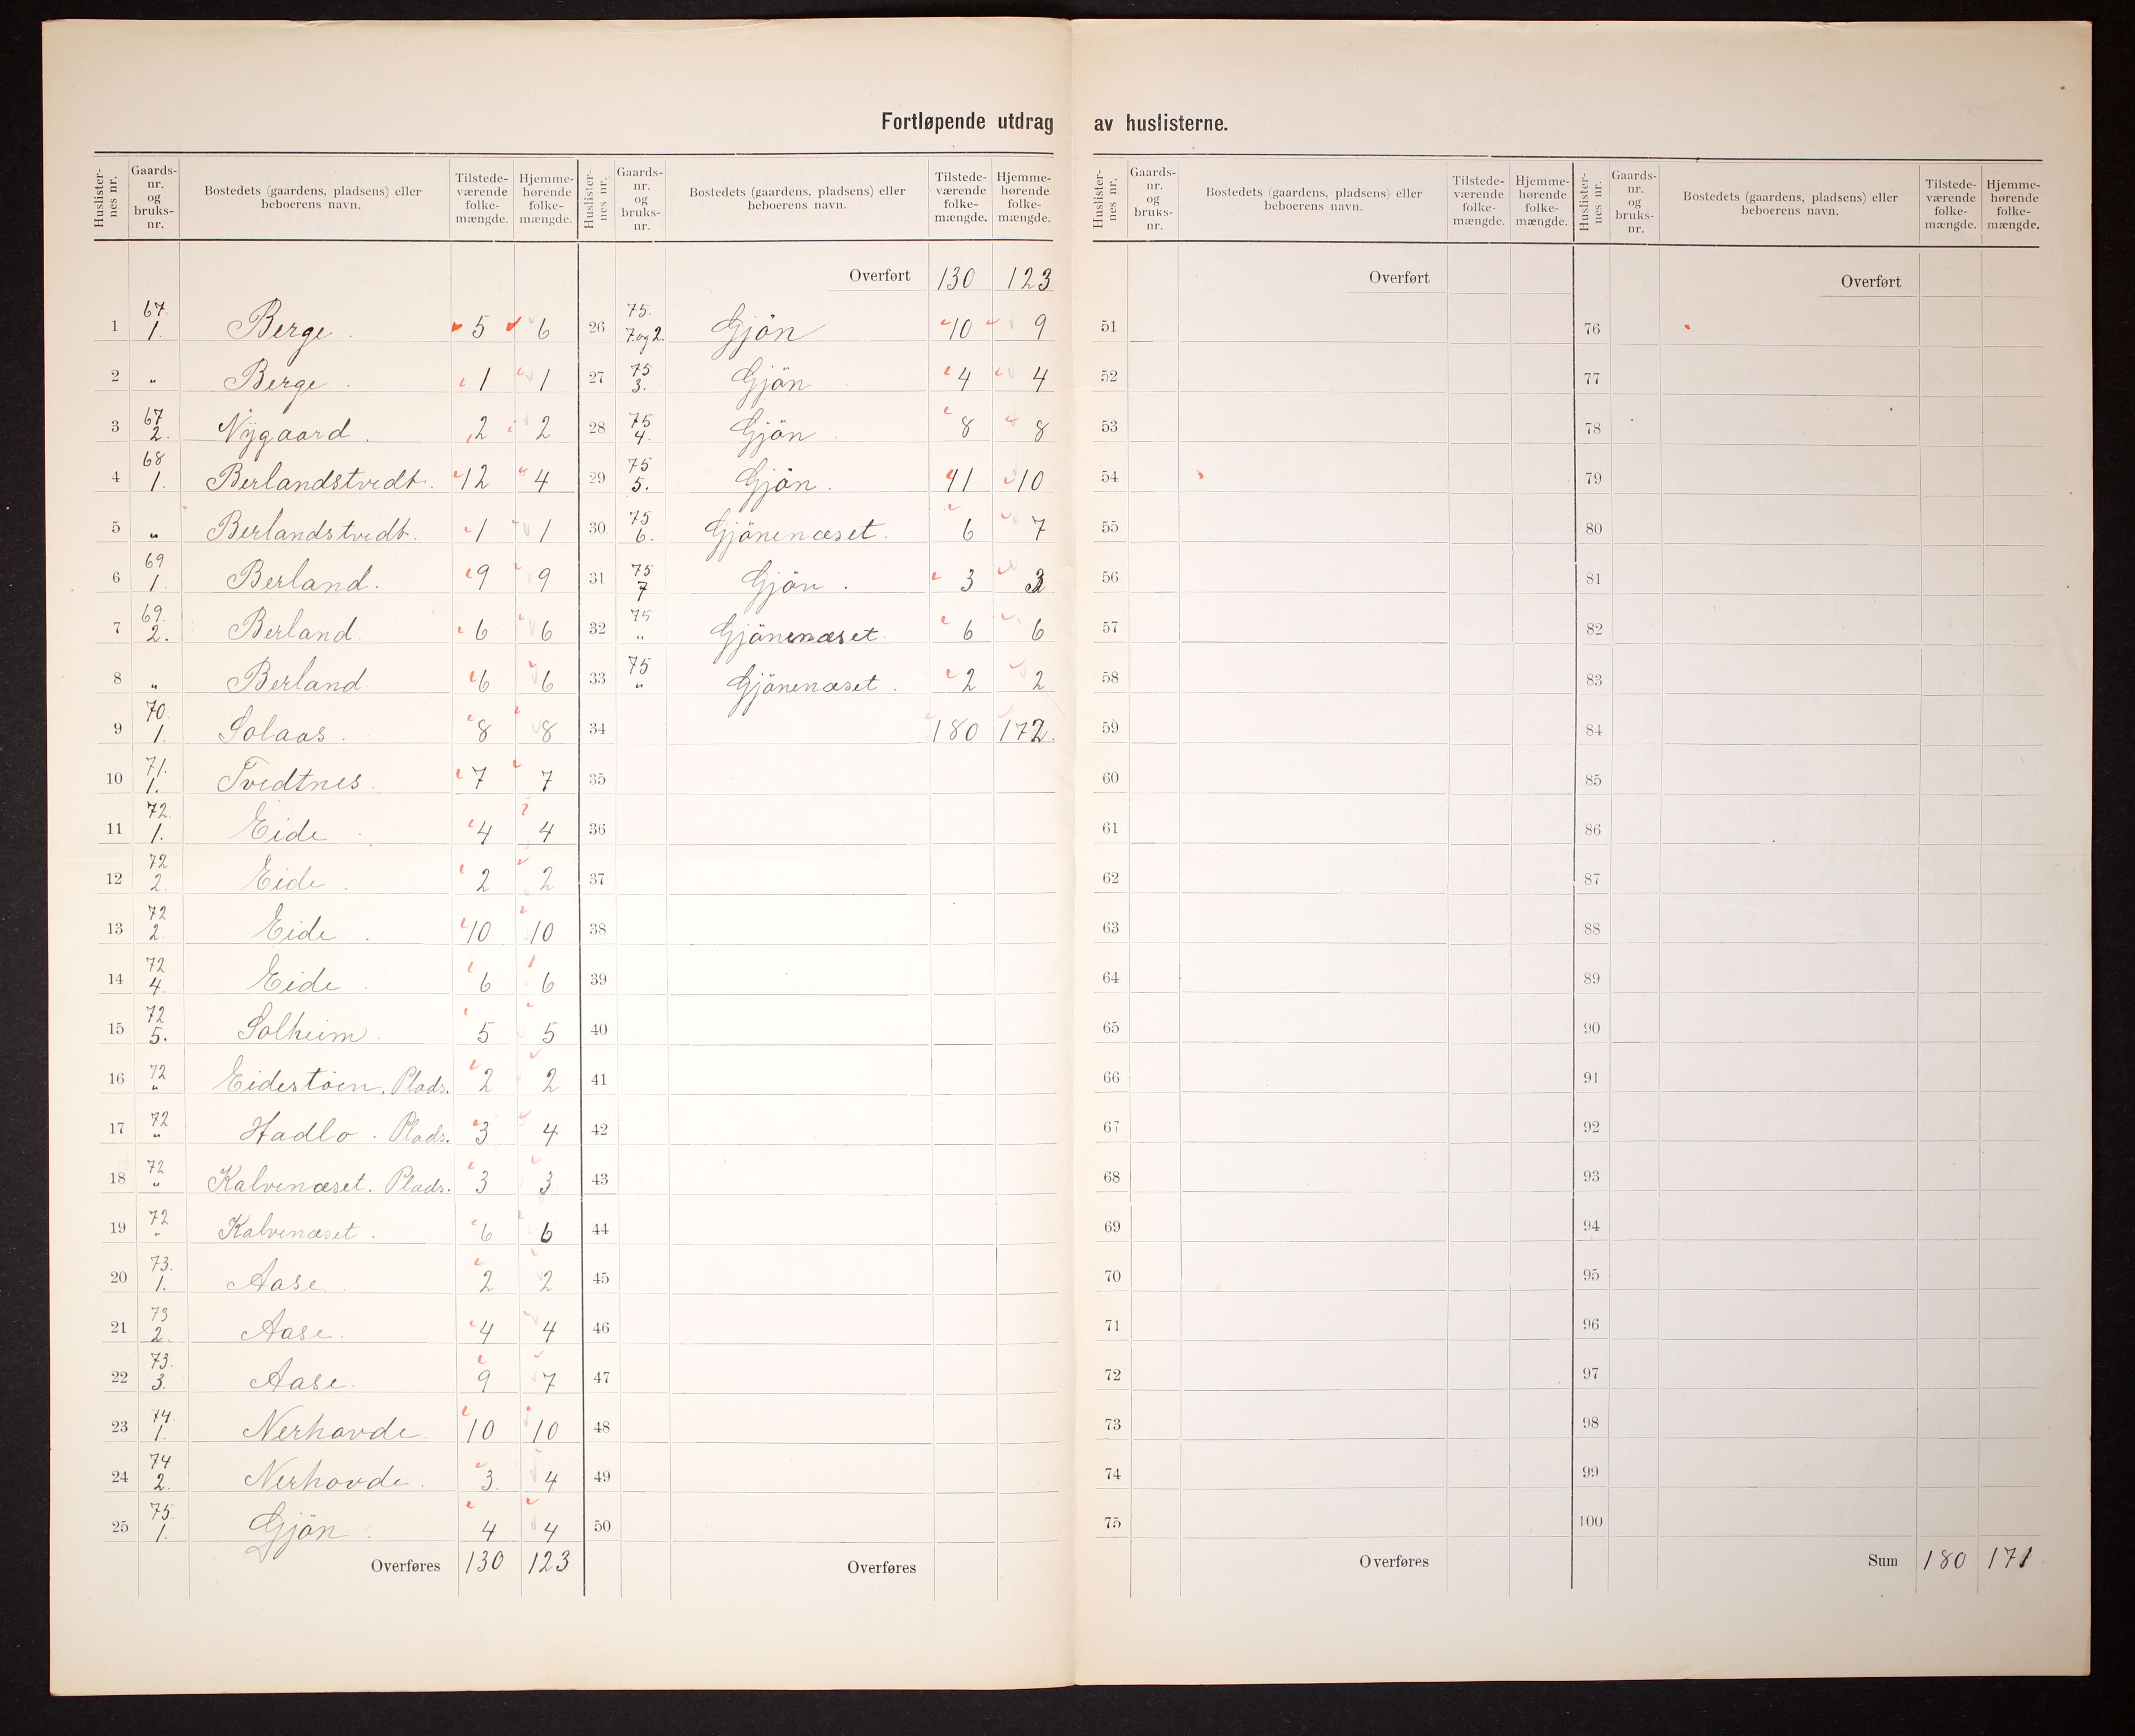 Fortløpende utdrag av huslisterne.
Huslisternes nr. Gaards-nr. og bruks-nr. Bostedets (gaardens, pladsens) eller beboerens navn. Tilstedeværende folkemængde. Hjemmehørende folkemængde.
1 67. 1. Berge. 5 6
2 " Berge. 1 1
3 67 2. Nygaard. 2 2
4 68 1. Berlandstvedt. 12 4
5 " Berlandstvedt. 1 1
6 69 1. Berland. 9 9
7 69. 2. Berland. 6 6
8 " Berland. 6 6
9 70. 1. Solaas. 8 8
10 71. 1. Tvedtnes. 7 7
11 72. 1. Eide. 4 4
12 72 2. Eide. 2 2
13 72 2. Eide. 10 10
14 72 4. Eide. 6 6
15 72 5. Solheim. 5 5
16 72 " Eidestöen. Plads. 2 2
17 72 " Hadlo. Plads. 3 4
18 72 " Kalvenæset. Plads. 3 3
19 72 " Kalvenæset. 6 6
20 73. 1. Aase. 2 2
21 73 2. Aase. 4 4
22 73. 3. Aase. 9 7
23 74. 1. Nerhovde. 10 10
24 74 2. Nerhovde. 3. 4
25 75. 1. Gjön. 4 4
Overføres 130 123
Huslisternes nr. Gaards-nr. og bruks-nr. Bostedets (gaardens, pladsens) eller beboerens navn. Tilstedeværende folkemængde. Hjemmehørende folkemængde.
Overført 130 123
26 75. 7. og 2. Gjön 10 9
27 75 3. Gjön 4 4
28 75 4. Gjön. 8 8
29 75 5. Gjön. 11 10
30 75 6. Gjönenæset. 6 7
31 75 7 Gjön. 3
32 75 " Gjönenæset. 6 6
33 75 " Gjönenæset. 2 2
34 180 172.
35
36
37
38
39
40
41
42
43
44
45
46
47
48
49
50
Overføres
Huslisternes nr. Gaards-nr. og bruks-nr. Bostedets (gaardens, pladsens) eller beboerens navn. Tilstedeværende folkemængde. Hjemmehørende folkemængde.
Overført
51
52
53
54
55
56
57
58
59
60
61
62
63
64
65
66
67
68
69
70
71
72
73
74
75
Overføres
Huslisternes nr. Gaards-nr. og bruks-nr. Bostedets (gaardens, pladsens) eller beboerens navn. Tilstedeværende folkemængde. Hjemmehørende folkemængde.
Overført
76
77
78
79
80
81
82
83
84
85
86
87
88
89
90
91
92
93
94
95
96
97
98
99
100
Sum 180 171